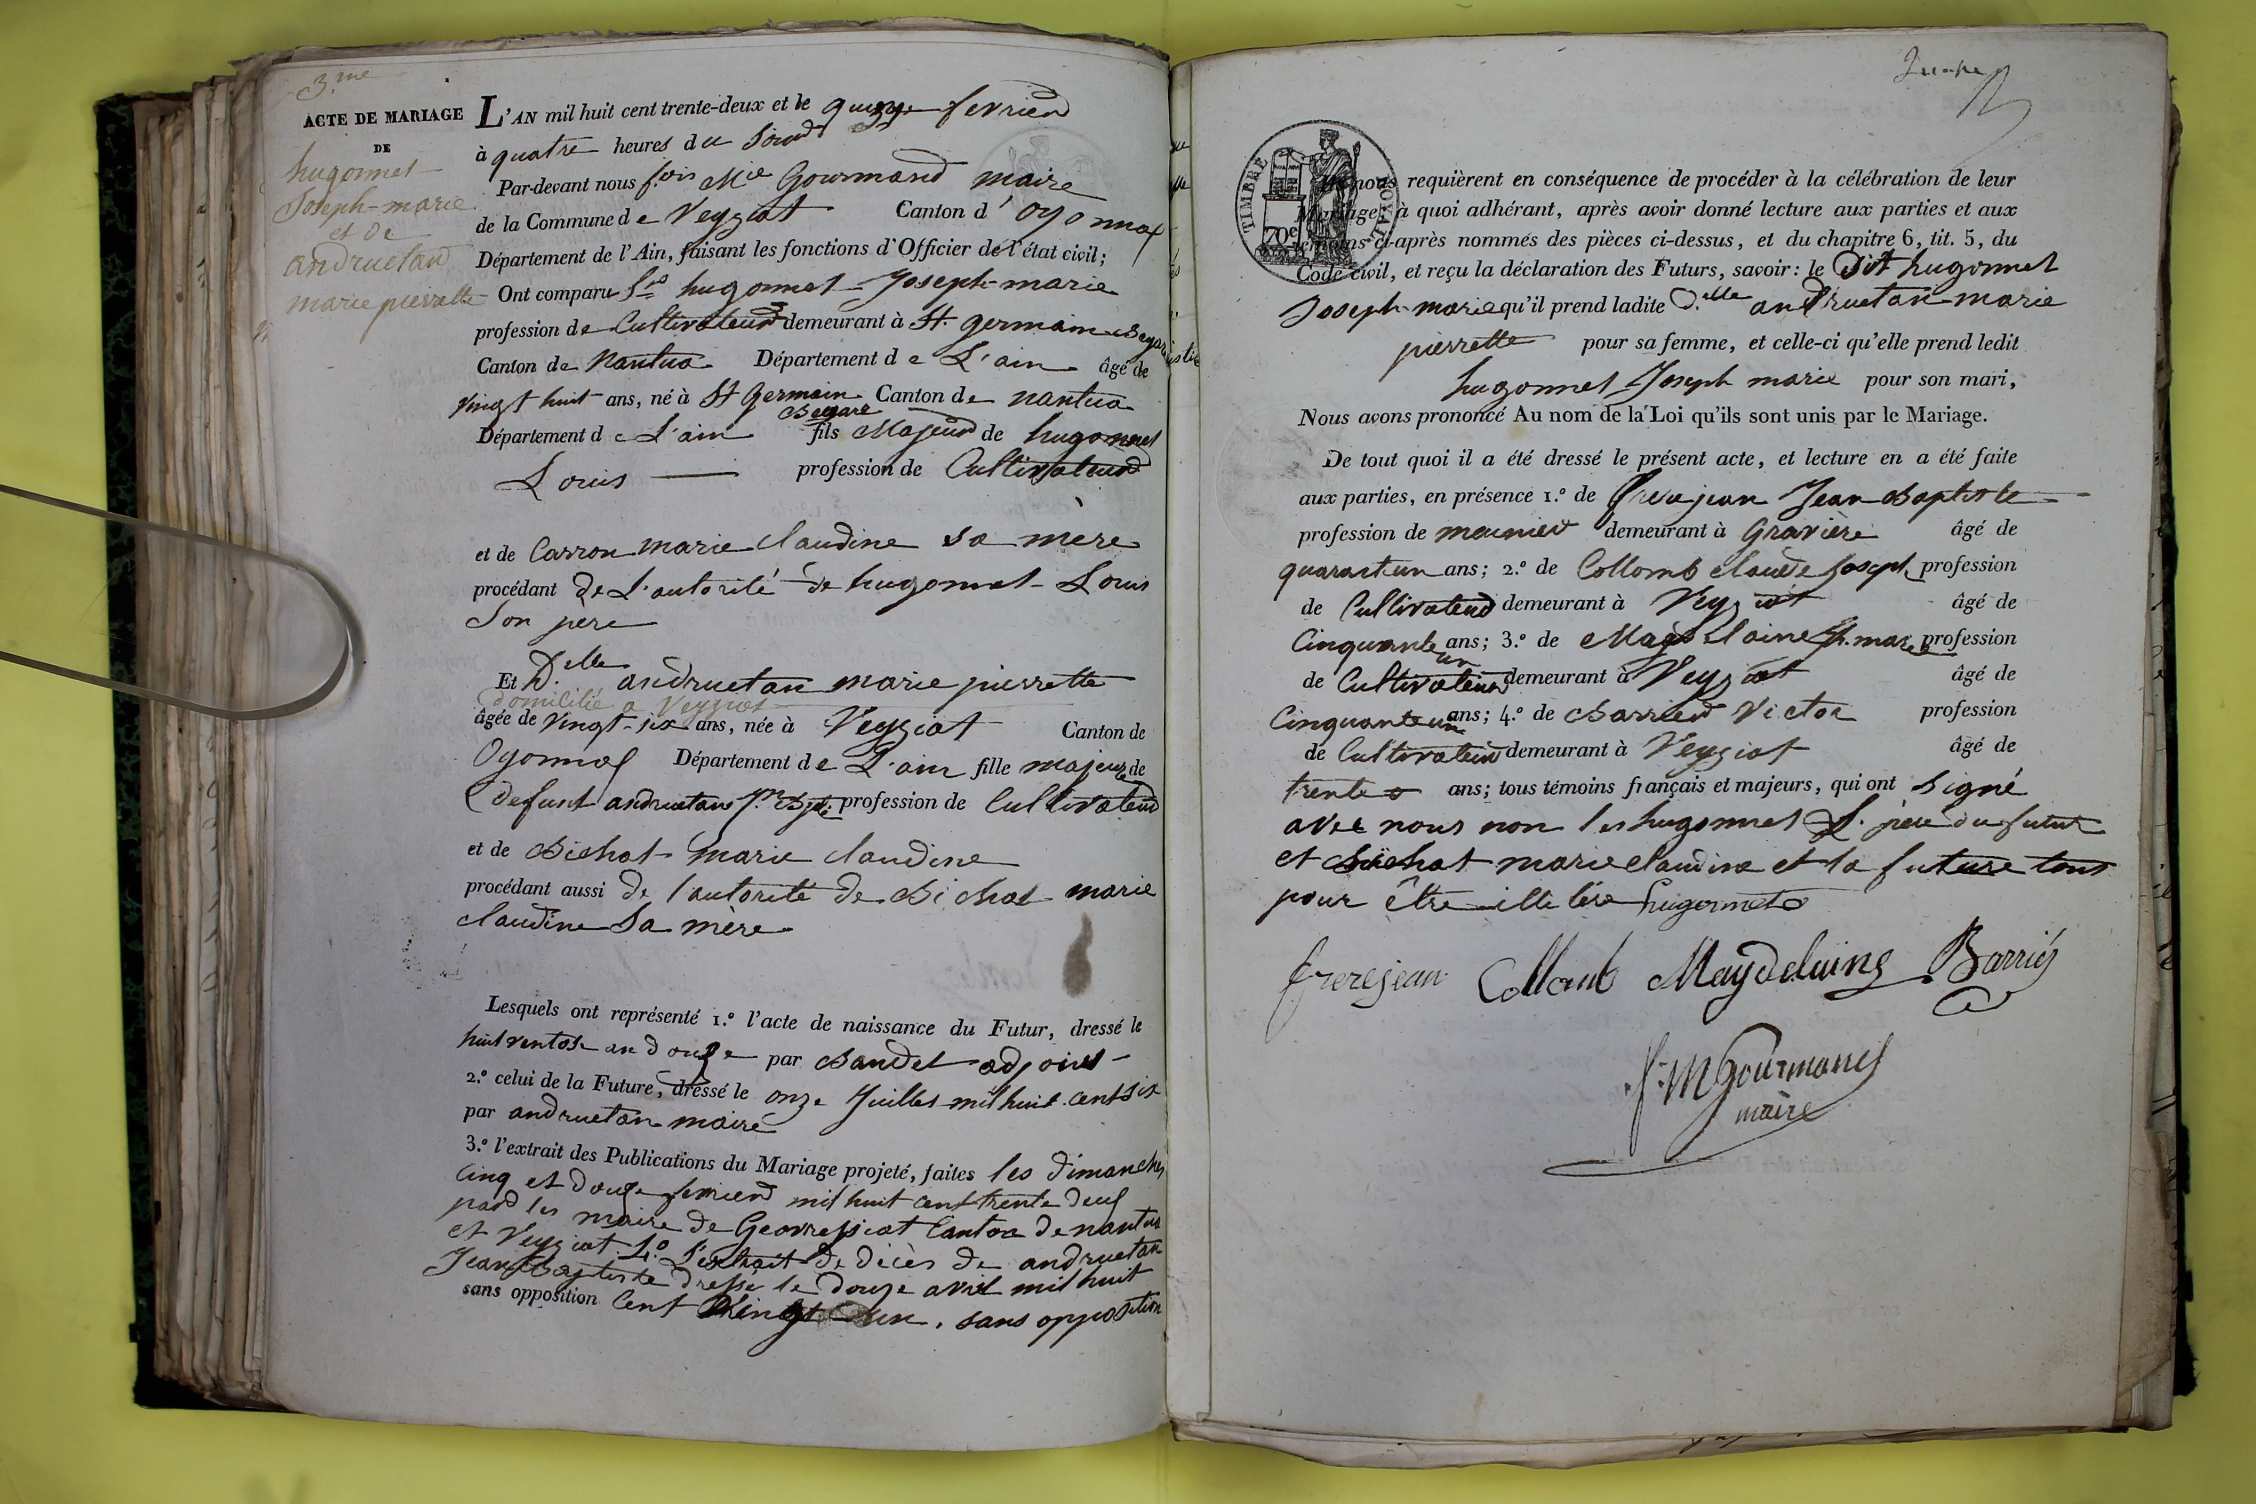 3.me
ACTE DE MARIAGE
DE
hugonnet
Joseph-marie
et de
andruetan
marie pierrette
L'AN mil huit cent trente-deux et le quinze fevrier
à quatre heures du Soir
Par-devant nous f.ois M.ie Gourmand maire
de la Commune de Veyziat Canton d'oyonnax
Département de l'Ain, faisant les fonctions d'Officier de l'état civil;
Ont comparu S.r hugonnet Joseph-marie
profession de Cultivateur demeurant à St. germain
Canton de Nantua Département de L'ain âgé de
vingt huit ans, né à St germain Canton de nantua
Begare
Département de L'ain fils Majeur de hugonnet
Louis profession de Cultivateur
et de Carron marie claudine sa mère
procédant de L'autorité de hugonnet Louis
Son père
Et D.elle andruetan marie pierrette
domicilié a Veyziat
âgée de vingt-six ans, née à Veyziat Canton de
Oyonnax Département de L'ain fille majeure de
defunt andruetan J.n Bpt.e profession de Cultivateur
et de Bichat marie claudine
procédant aussi de l'autorité de Bichat marie
claudine Sa mère
Lesquels ont représenté 1.° l'acte de naissance du Futur, dressé le
huit ventose an douze par Bandet adjoint
2.° celui de la Future, dressé le onze Juillet mil huit cent six
par andruetan maire
3.° l'extrait des Publications du Mariage projeté, faites les dimanches
Cinq et douze fevrier mil huit cent trente deux
par les maire de Geovressiat Canton de nantua
et Veyziat. 4.° L'extrait de décès de andruetan
Jean Baptiste dressé le douze avril mil huit
sans opposition Cent vingt un. sans opposition
TIMBRE ROYAL
70c
nous requièrent en conséquence de procéder à la célébration de leur
Mariage, à quoi adhérant, après avoir donné lecture aux parties et aux
témoins ci-après nommés des pièces ci-dessus, et du chapitre 6, tit. 5, du
Code civil, et reçu la déclaration des Futurs, savoir: le Dit hugonnet
Joseph-marie qu'il prend ladite D.elle andruetan marie
pierrette pour sa femme, et celle-ci qu'elle prend ledit
hugonnet Joseph marie pour son mari,
Nous avons prononcé Au nom de la Loi qu'ils sont unis par le Mariage.
De tout quoi il a été dressé le présent acte, et lecture en a été faite
aux parties, en présence 1.° de frerejean Jean Baptiste
profession de meunier demeurant à Gravière âgé de
quarante un ans; 2.° de Collomb claude Joseph profession
de Cultivateur demeurant à Veyziat âgé de
Cinquante un ans; 3.° de Magdelaine marie profession
de Cultivateur demeurant à Veyziat âgé de
Cinquante un ans; 4.° de Barrier Victor profession
de Cultivateur demeurant à Veyziat âgé de
trente ans; tous témoins français et majeurs, qui ont signé
avec nous non les hugonnet L. père du futur
et Bichat marie claudine et la future tous
pour être illitéré hugonnet
frerejean Collomb Maydelaine Barriéz
f. M Gourmand
maire